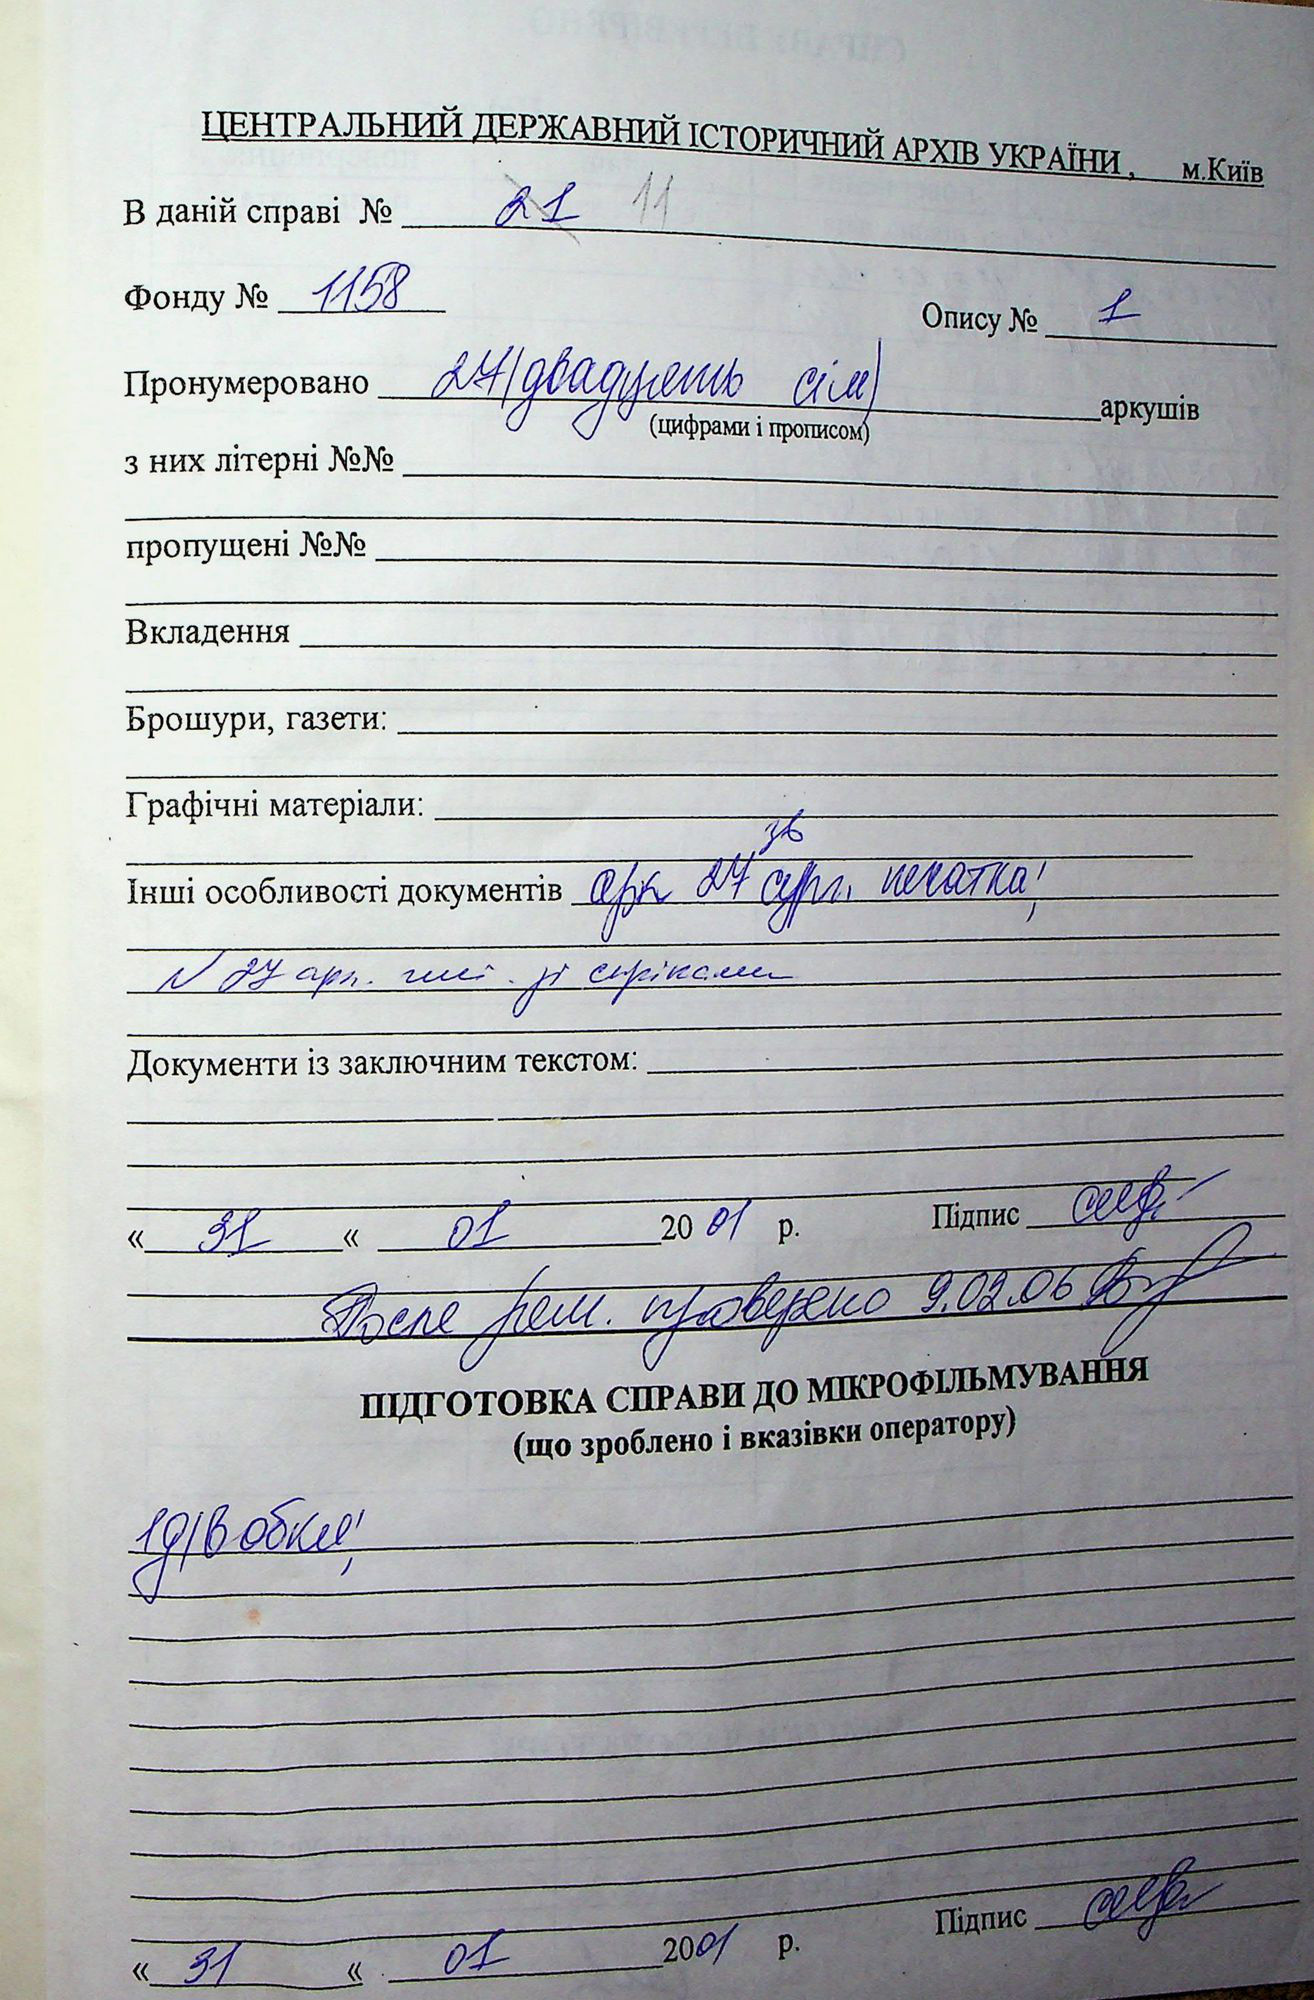 ЦЕНТРАЛЬНИЙ ДЕРЖАВНИЙ ІСТОРИЧНИЙ АРХІВ УКРАЇНИ, м.Київ
В даній справі № 21 11
Фонду № 1158 Опису № 1
Пронумеровано 27 (двадцять сім) аркушів
(цифрами і прописом)
з них літерні №№
пропущені №№
Вкладення
Брошури, газети:
Графічні матеріали:
зв
Інші особливості документів арк 27 сург. печатка;
27 арк.
Документи із заключним текстом:
« 31 « 01 2001 р. Підпис
После рем. проверено 9.02.06
ПІДГОТОВКА СПРАВИ ДО МІКРОФІЛЬМУВАННЯ
(що зроблено і вказівки оператору)
« 31 « 01 2001 р. Підпис